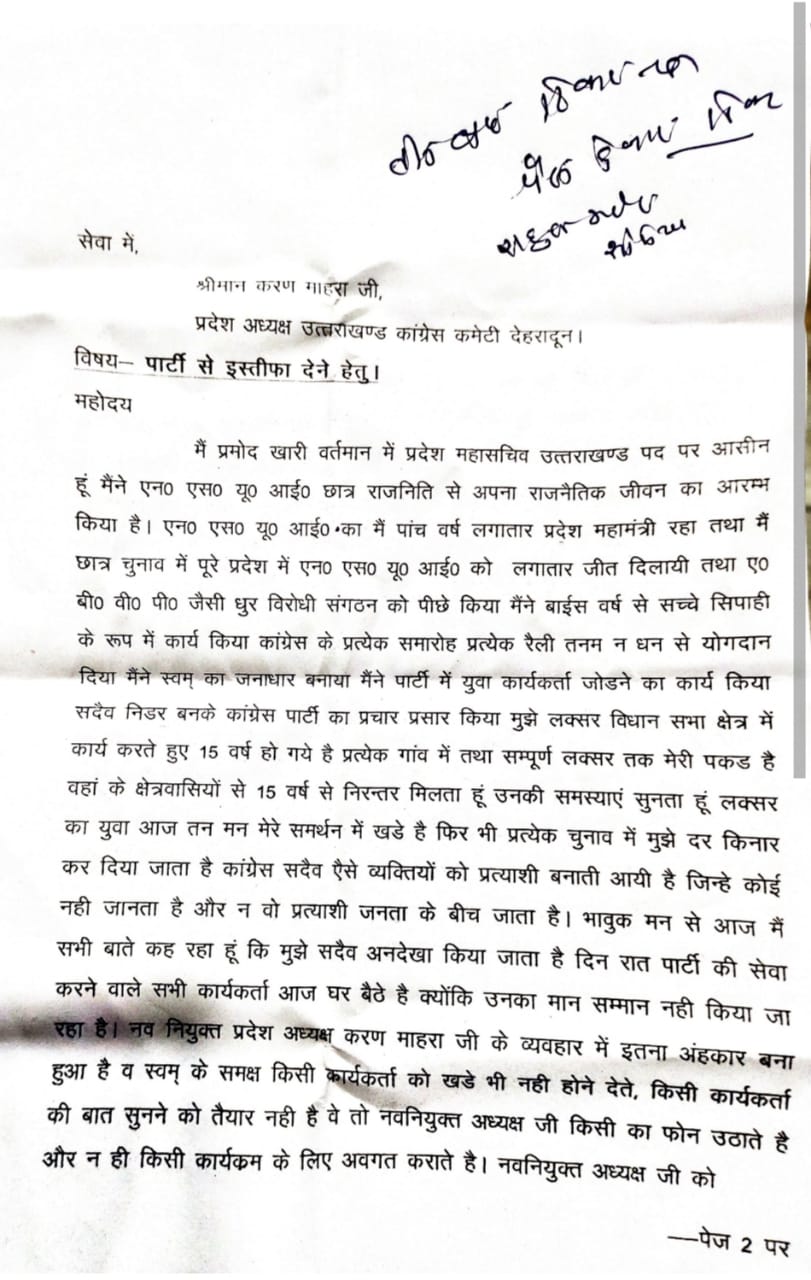 सेवा में,
श्रीमान करण माहरा जी,
प्रदेश अध्यक्ष उत्तराखण्ड कांग्रेस कमेटी देहरादून।
विषय– पार्टी से इस्तीफा देने हेतु।
महोदय
मैं प्रमोद खारी वर्तमान में प्रदेश महासचिव उत्तराखण्ड पद पर आसीन
हूं मैंने एन0 एस0 यू0 आई0 छात्र राजनिति से अपना राजनैतिक जीवन का आरम्भ
किया है। एन0 एस0 यू0 आई0 का मैं पांच वर्ष लगातार प्रदेश महामंत्री रहा तथा मैं
छात्र चुनाव में पूरे प्रदेश में एन0 एस0 यू0 आई0 को लगातार जीत दिलायी तथा ए0
बी0 वी0 पी0 जैसी धुर विरोधी संगठन को पीछे किया मैंने बाईस वर्ष से सच्चे सिपाही
के रूप में कार्य किया कांग्रेस के प्रत्येक समारोह प्रत्येक रैली तनम न धन से योगदान
दिया मैंने स्वम् का जनाधार बनाया मैंने पार्टी में युवा कार्यकर्ता जोडने का कार्य किया
सदैव निडर बनके कांग्रेस पार्टी का प्रचार प्रसार किया मुझे लक्सर विधान सभा क्षेत्र में
कार्य करते हुए 15 वर्ष हो गये है प्रत्येक गांव में तथा सम्पूर्ण लक्सर तक मेरी पकड है
वहां के क्षेत्रवासियों से 15 वर्ष से निरन्तर मिलता हूं उनकी समस्याएं सुनता हूं लक्सर
का युवा आज तन मन मेरे समर्थन में खडे है फिर भी प्रत्येक चुनाव में मुझे दर किनार
कर दिया जाता है कांग्रेस सदैव ऐसे व्यक्तियों को प्रत्याशी बनाती आयी है जिन्हे कोई
नही जानता है और न वो प्रत्याशी जनता के बीच जाता है। भावुक मन से आज मैं
सभी बाते कह रहा हूं कि मुझे सदैव अनदेखा किया जाता है दिन रात पार्टी की सेवा
करने वाले सभी कार्यकर्ता आज घर बैठे है क्योंकि उनका मान सम्मान नही किया जा
रहा है। नव नियुक्त प्रदेश अध्यक्ष करण माहरा जी के व्यवहार में इतना अंहकार बना
हुआ है व स्वम् के समक्ष किसी कार्यकर्ता को खडे भी नही होने देते, किसी कार्यकर्ता
की बात सुनने को तैयार नही है वे तो नवनियुक्त अध्यक्ष जी किसी का फोन उठाते है
और न ही किसी कार्यकम के लिए अवगत कराते है। नवनियुक्त अध्यक्ष जी को
—पेज 2 पर